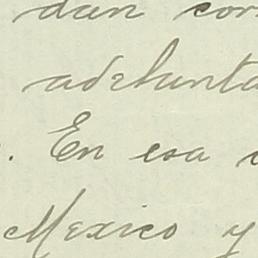 dan con
adelanta
. En esa
Mexico y